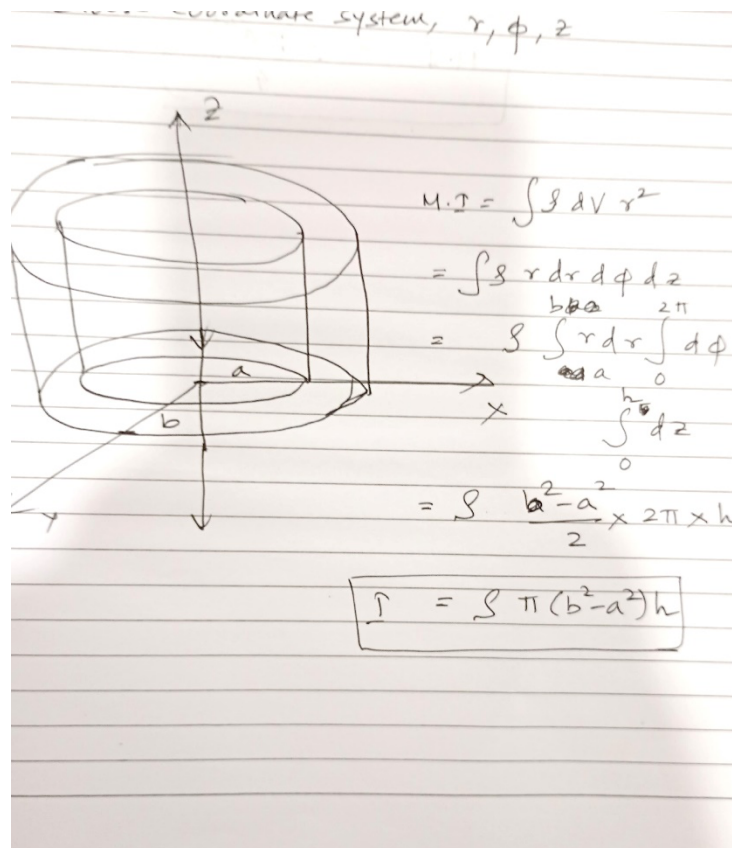 coordinate system, r, φ, z
Z
M.I = ∫ρ dV r²
= ∫ρ r dr dφ dz
= ρ ∫_a^b r dr ∫_0^{2π} dφ
∫_0^h dz
a
b
X
Y
= ρ (b²-a²)/2 × 2π × h
I = ρ π (b²-a²) h